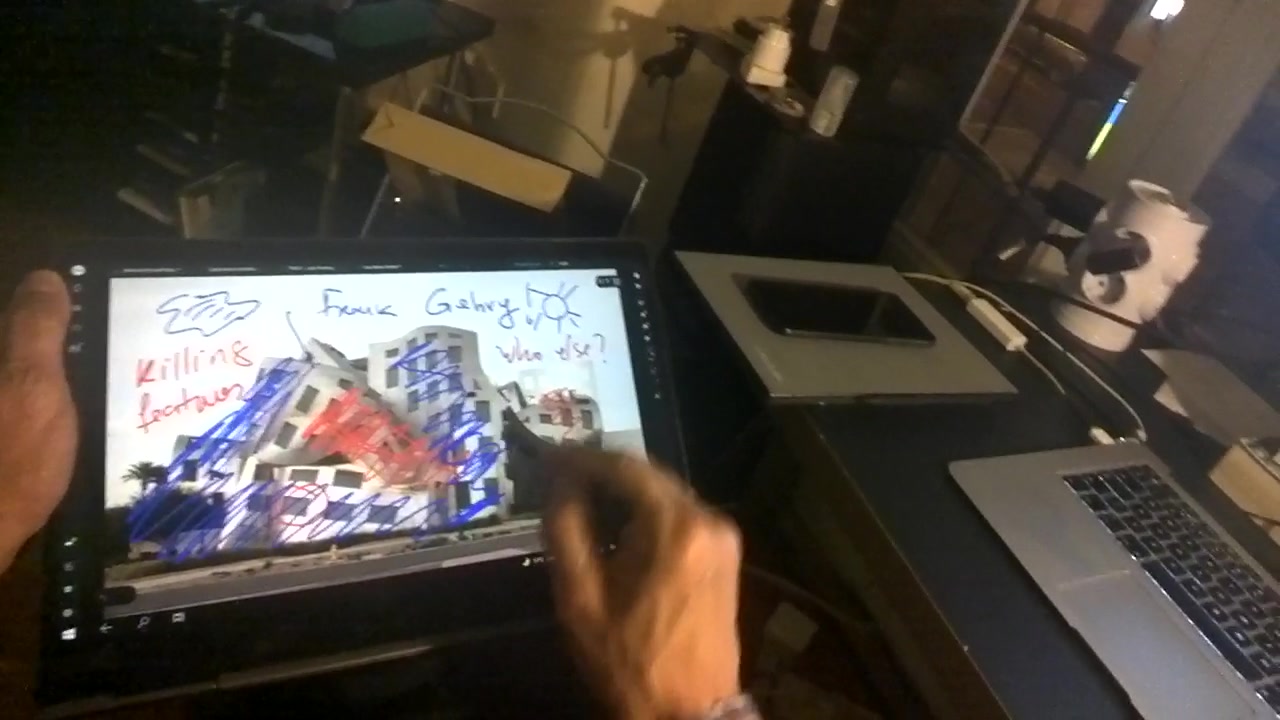 Frank Gehry
who else?
Killing
features